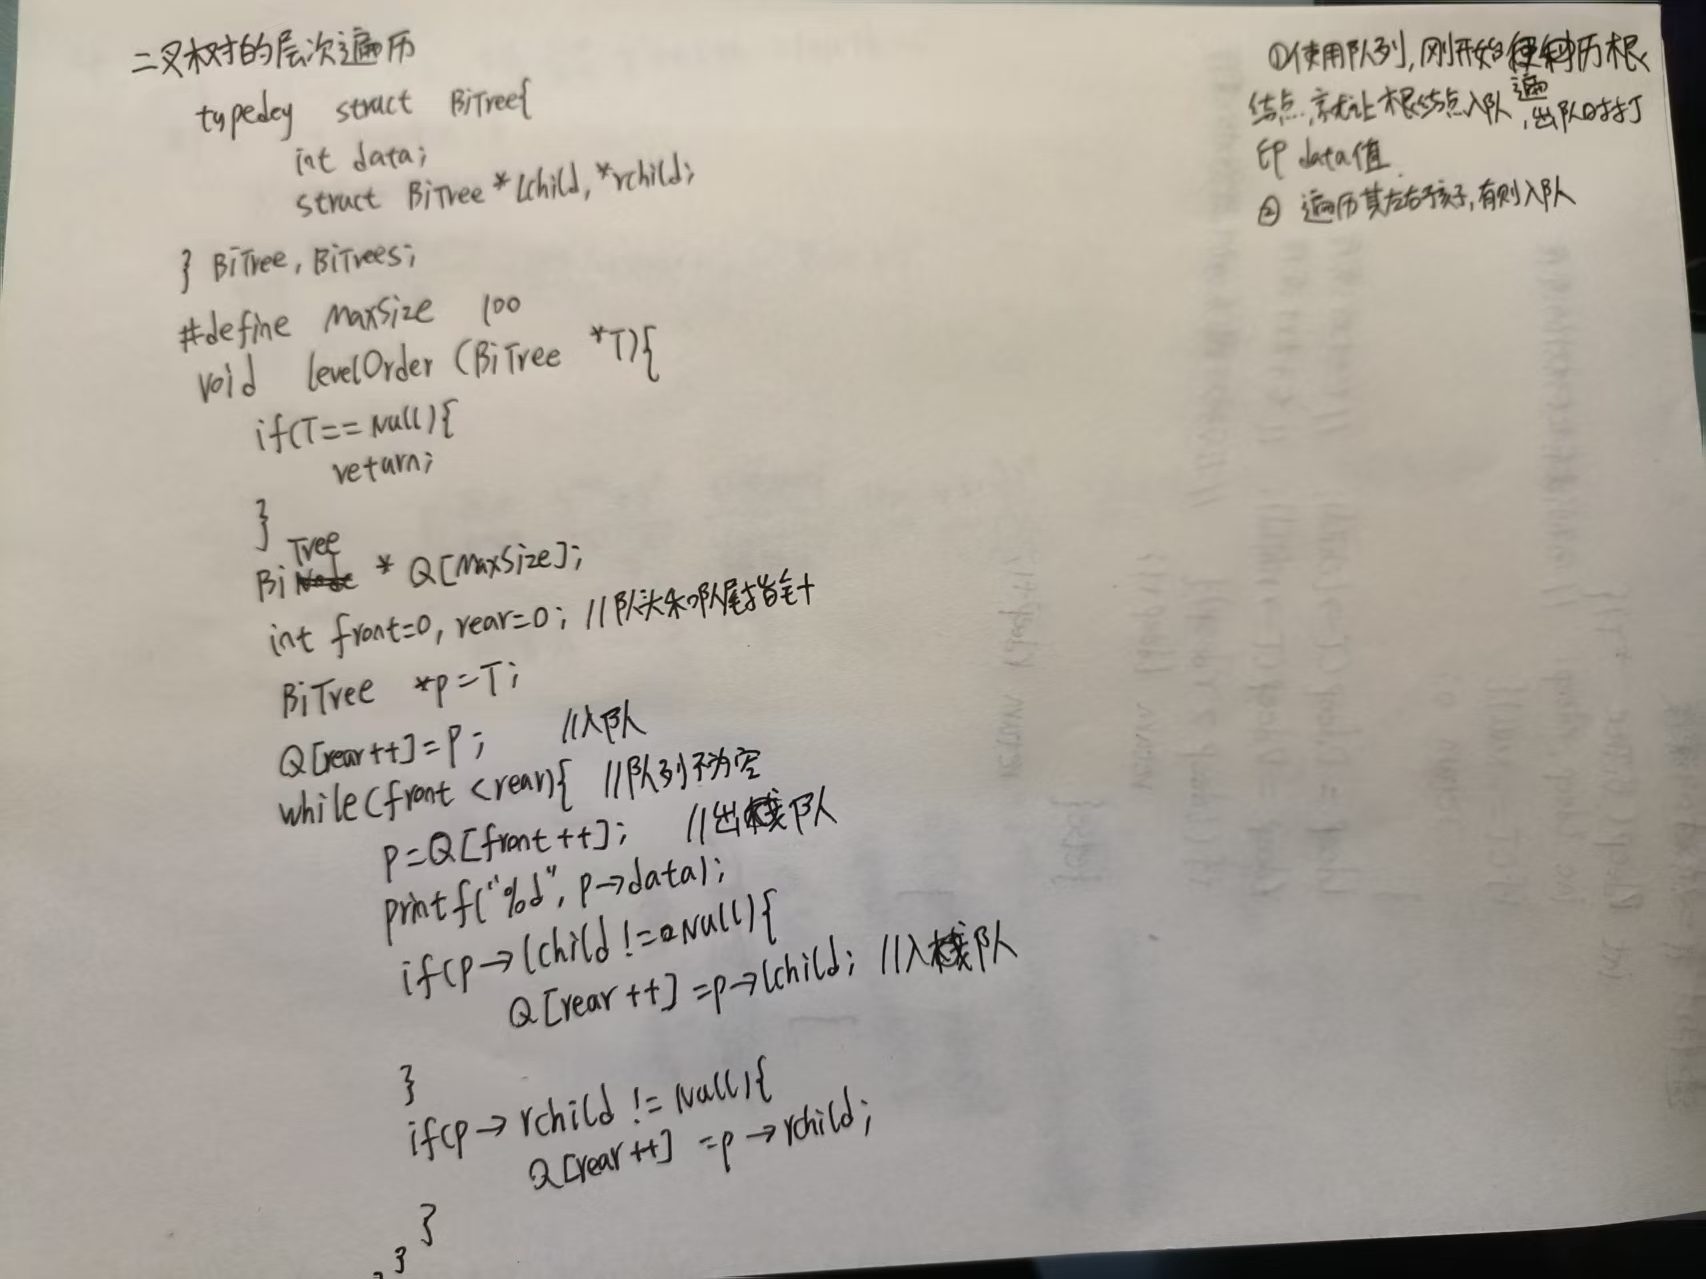 二叉树的层次遍历
typedef struct BiTree{
int data;
struct BiTree *lchild,*rchild;
} BiTree, BiTrees;
#define MaxSize 100
void levelOrder (BiTree *T){
if(T== Null){
return;
}
BiTree * Q[MaxSize];
int front=0, rear=0; //队头和队尾指针
BiTree *p=T;
Q[rear++]=p; //入队
while(front <rear){ //队列不为空
p=Q[front++]; //出队
printf("%d", p→data);
if(p→lchild !=Null){
Q[rear++]=p→lchild; //入队
}
if(p→rchild != Null){
Q[rear++] =p→rchild;
}
}
}
①使用队列,刚开始遍历根
结点,就让根结点入队,出队时打
印data值
② 遍历其左右孩子,有则入队